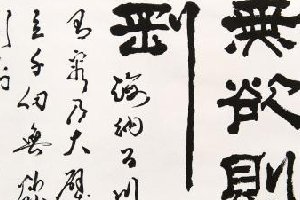 無欲則
剛
海納百川
有容乃大壁
立千仞無欲